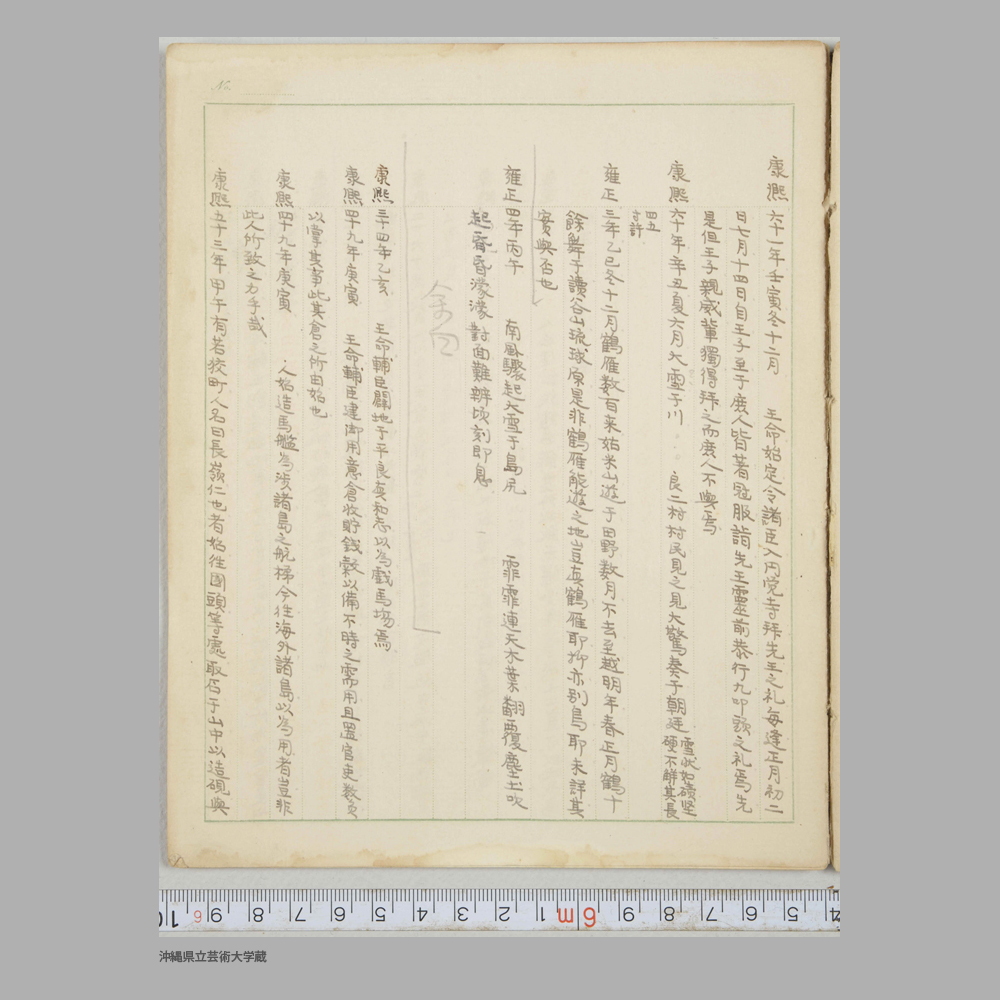 康熙六十一年壬寅冬十二月 王命始定令諸臣入円覚寺拝先王之礼毎逢正月初二
日七月十四日自王子至于庶人皆著冠服詣先王霊前恭行九叩頭之礼焉先
是但王子親戚輩獨得拝之而庶人不與焉
康熙六十年辛丑夏六月大雪于川 良二村村民見之見大驚奏于朝廷 雪状如磧堅硬不鮮其長
四五寸許
雍正三年乙巳冬十二月鶴雁数百来始米山遊于田野数月不去至越明年春正月鶴十
餘舞于讀谷山琉球原是非鶴雁能遊之地豈真鶴雁耶抑亦别鳥耶未詳其
實與否也
雍正四年丙午 南風驟起大雪于島尻 霏霏連天木葉翻覆塵土吹
起昏昏濛濛對面難辨頃刻即息
康熙三十四年乙亥 王命輔臣闢地于平良真和志以為戲馬場焉
康熙四十九年庚寅 王命輔臣建御用意倉收貯錢穀以備不時之需用且置官吏数員
以掌其事此其倉之所由始也
康熙四十九年庚寅 人始造馬艦為渉諸島之航梯今往海外諸島以為用者豈非
此人所致之力乎哉
康熙五十三年甲午有若狹町人名曰長嶺仁也者始往国頭等處取石于山中以造硯與